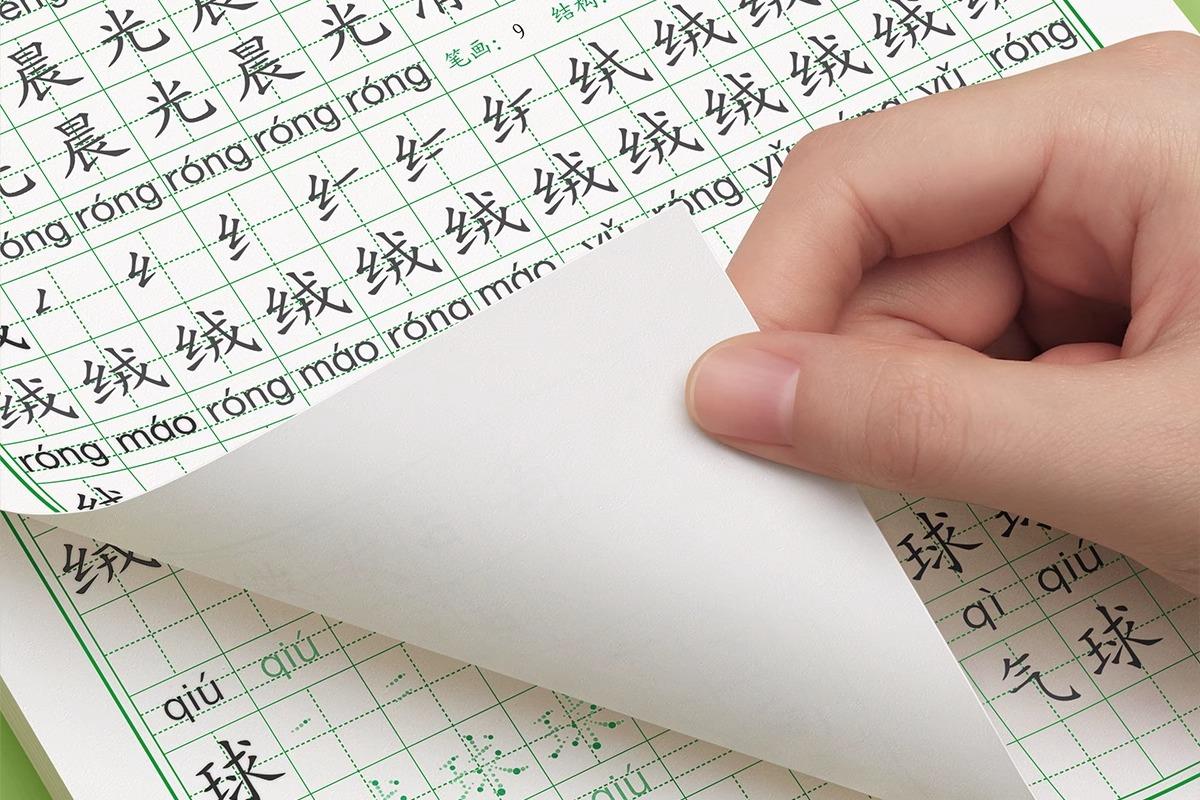 晨 光 晨
结构：
光 晨 光 清
笔画：9
晨 光 晨 光
róng róng róng róng róng
绒 绒 绒 绒
绒 绒 绒 绒 绒 绒 绒 绒 绒
róng máo róng máo róng máo yǔ róng yǔ róng
绒
绒
球
qì qiú
气 球
qiú qiú
球
qiú